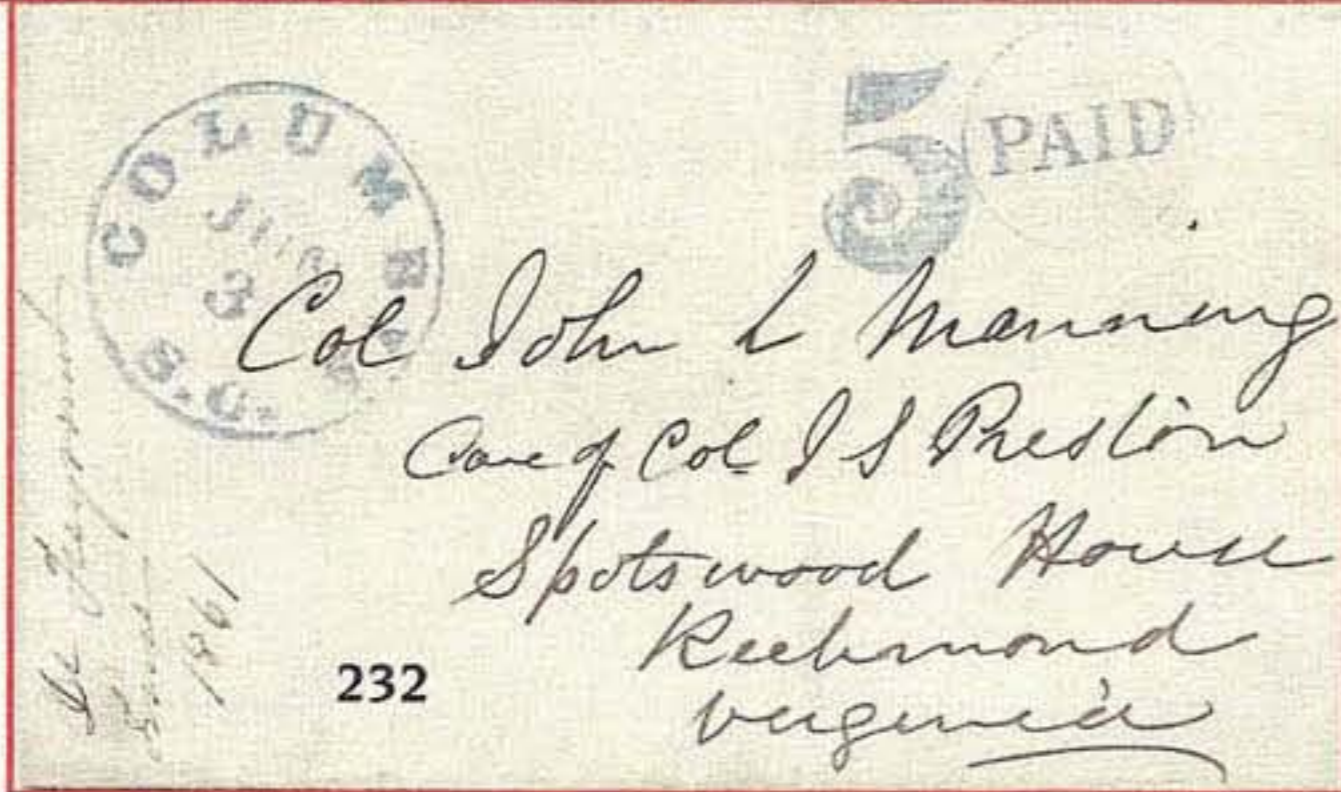 COLUMBIA
S.C.
3
5 PAID
Col John L Manning
Care of Col J S Preston
Spotswood House
Richmond
Virginia
1861
232